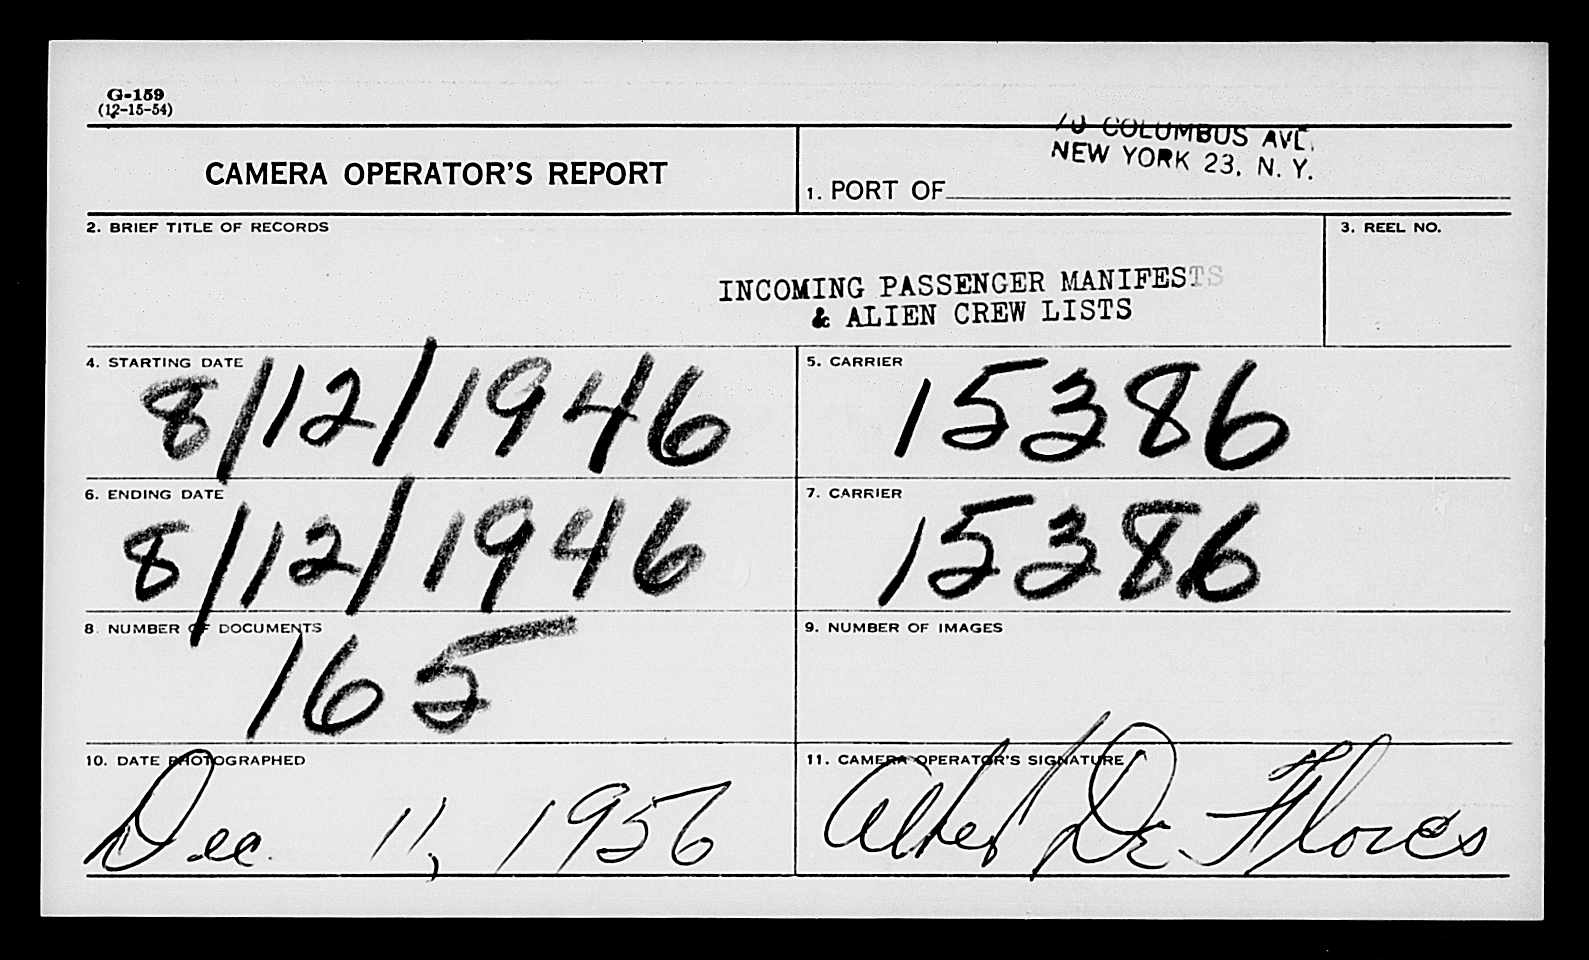 G-159
(12-15-54)
CAMERA OPERATOR'S REPORT
70 COLUMBUS AVE.
NEW YORK 23, N. Y.
1. PORT OF
2. BRIEF TITLE OF RECORDS
3. REEL NO.
INCOMING PASSENGER MANIFESTS
& ALIEN CREW LISTS
4. STARTING DATE
8/12/1946
5. CARRIER
15386
6. ENDING DATE
8/12/1946
7. CARRIER
15386
8. NUMBER OF DOCUMENTS
165
9. NUMBER OF IMAGES
10. DATE PHOTOGRAPHED
Dec. 11, 1956
11. CAMERA OPERATOR'S SIGNATURE
Albert De Flores